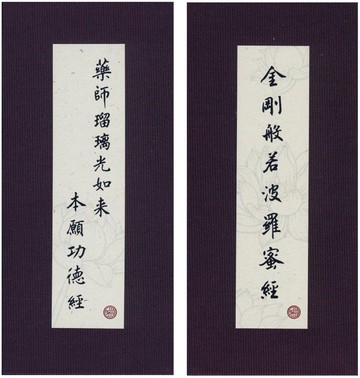 藥師瑠璃光如来
本願功德經
金剛般若波羅蜜經